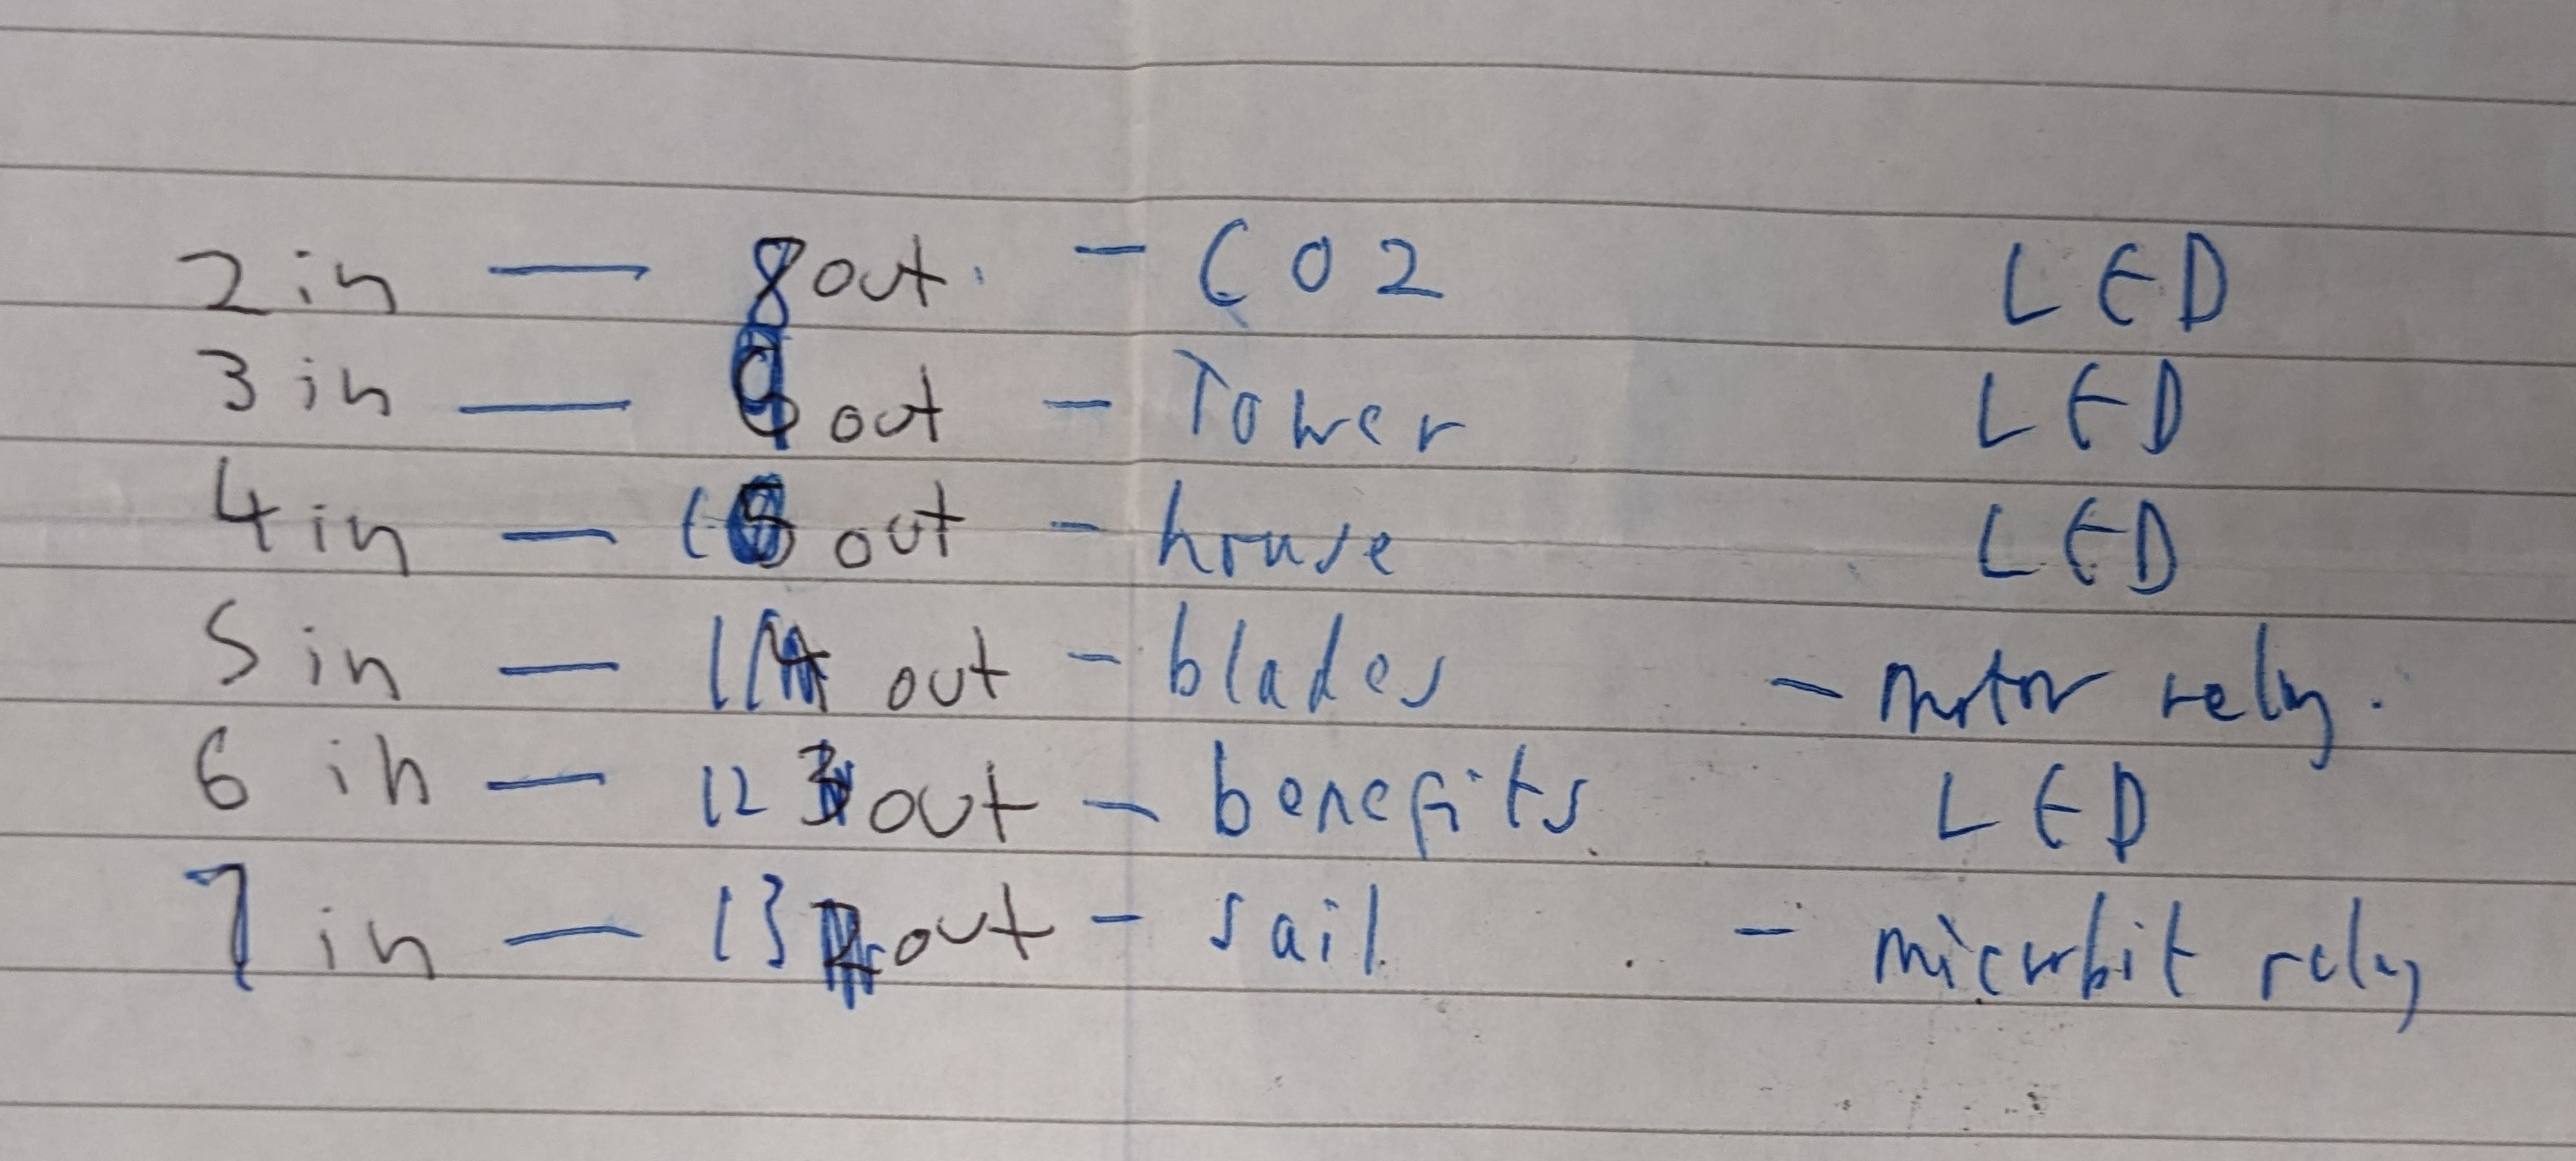 2 in — 8 out. - CO2 LED
3 in — 9 out - Tower LED
4 in — 10 out - house LED
5 in — 11 out - blades - motor relay.
6 in — 12 out - benefits LED
7 in — 13 out - sail - microbit relay